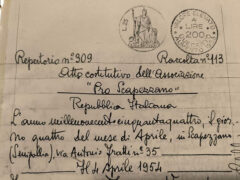 L.25
A
LIRE
200
Repertorio n° 909 Raccolta n° 113
Atto costitutivo dell'Associazione
"Pro Scapezzano"
Repubblica Italiana
L'anno millenovecentocinquantaquattro, il gior-
no quattro del mese di Aprile, in Scapezzano
(Senigallia), via Antonio Fratti n° 35
Il 4 Aprile 1954